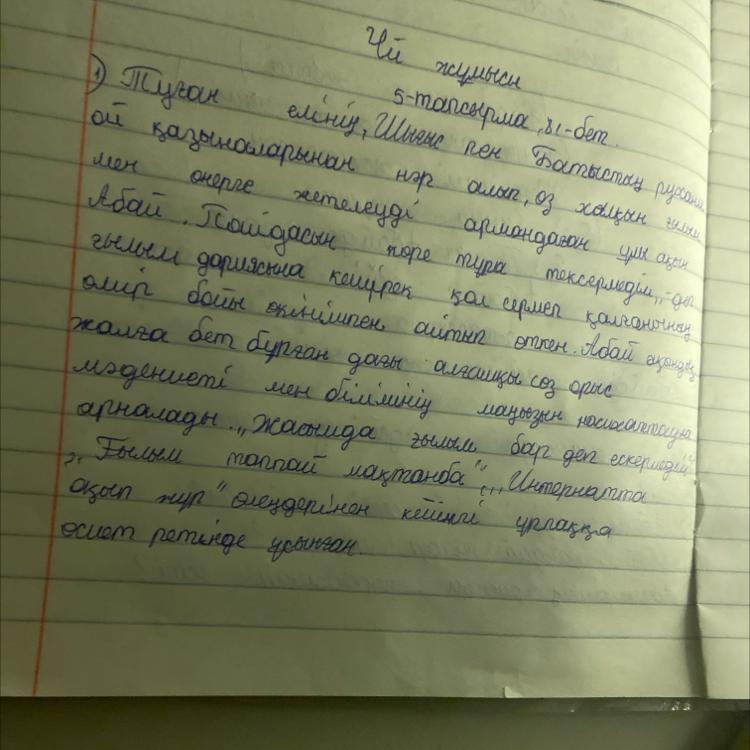 Үй жұмысы
5-тапсырма, 81-бет.
1) Туған елінің, Шығыс пен Батыстың рухани
ой қазыналарынан нәр алып, өз халқын ғылым
мен өнерге жетелеуді армандаған ұлы ақын
Абай. Пайдасын көре тұра тексермедім,,-деп
ғылым дариясына кешірек қол сермеп қалғанының
өмір бойы өкінішпен айтып өткен. Абай
жалға бет бұрған дағы алғашқы сөз орыс
мәдениеті мен білімінің маңызын насихаттауға
арналады. „Жасымда ғылым бар деп ескермедім"
„Ғылым таппай мақтанба", „Интернатта
оқып жүр" өлеңдерінен кейінгі ұрпаққа
өсиет ретінде ұсынған.